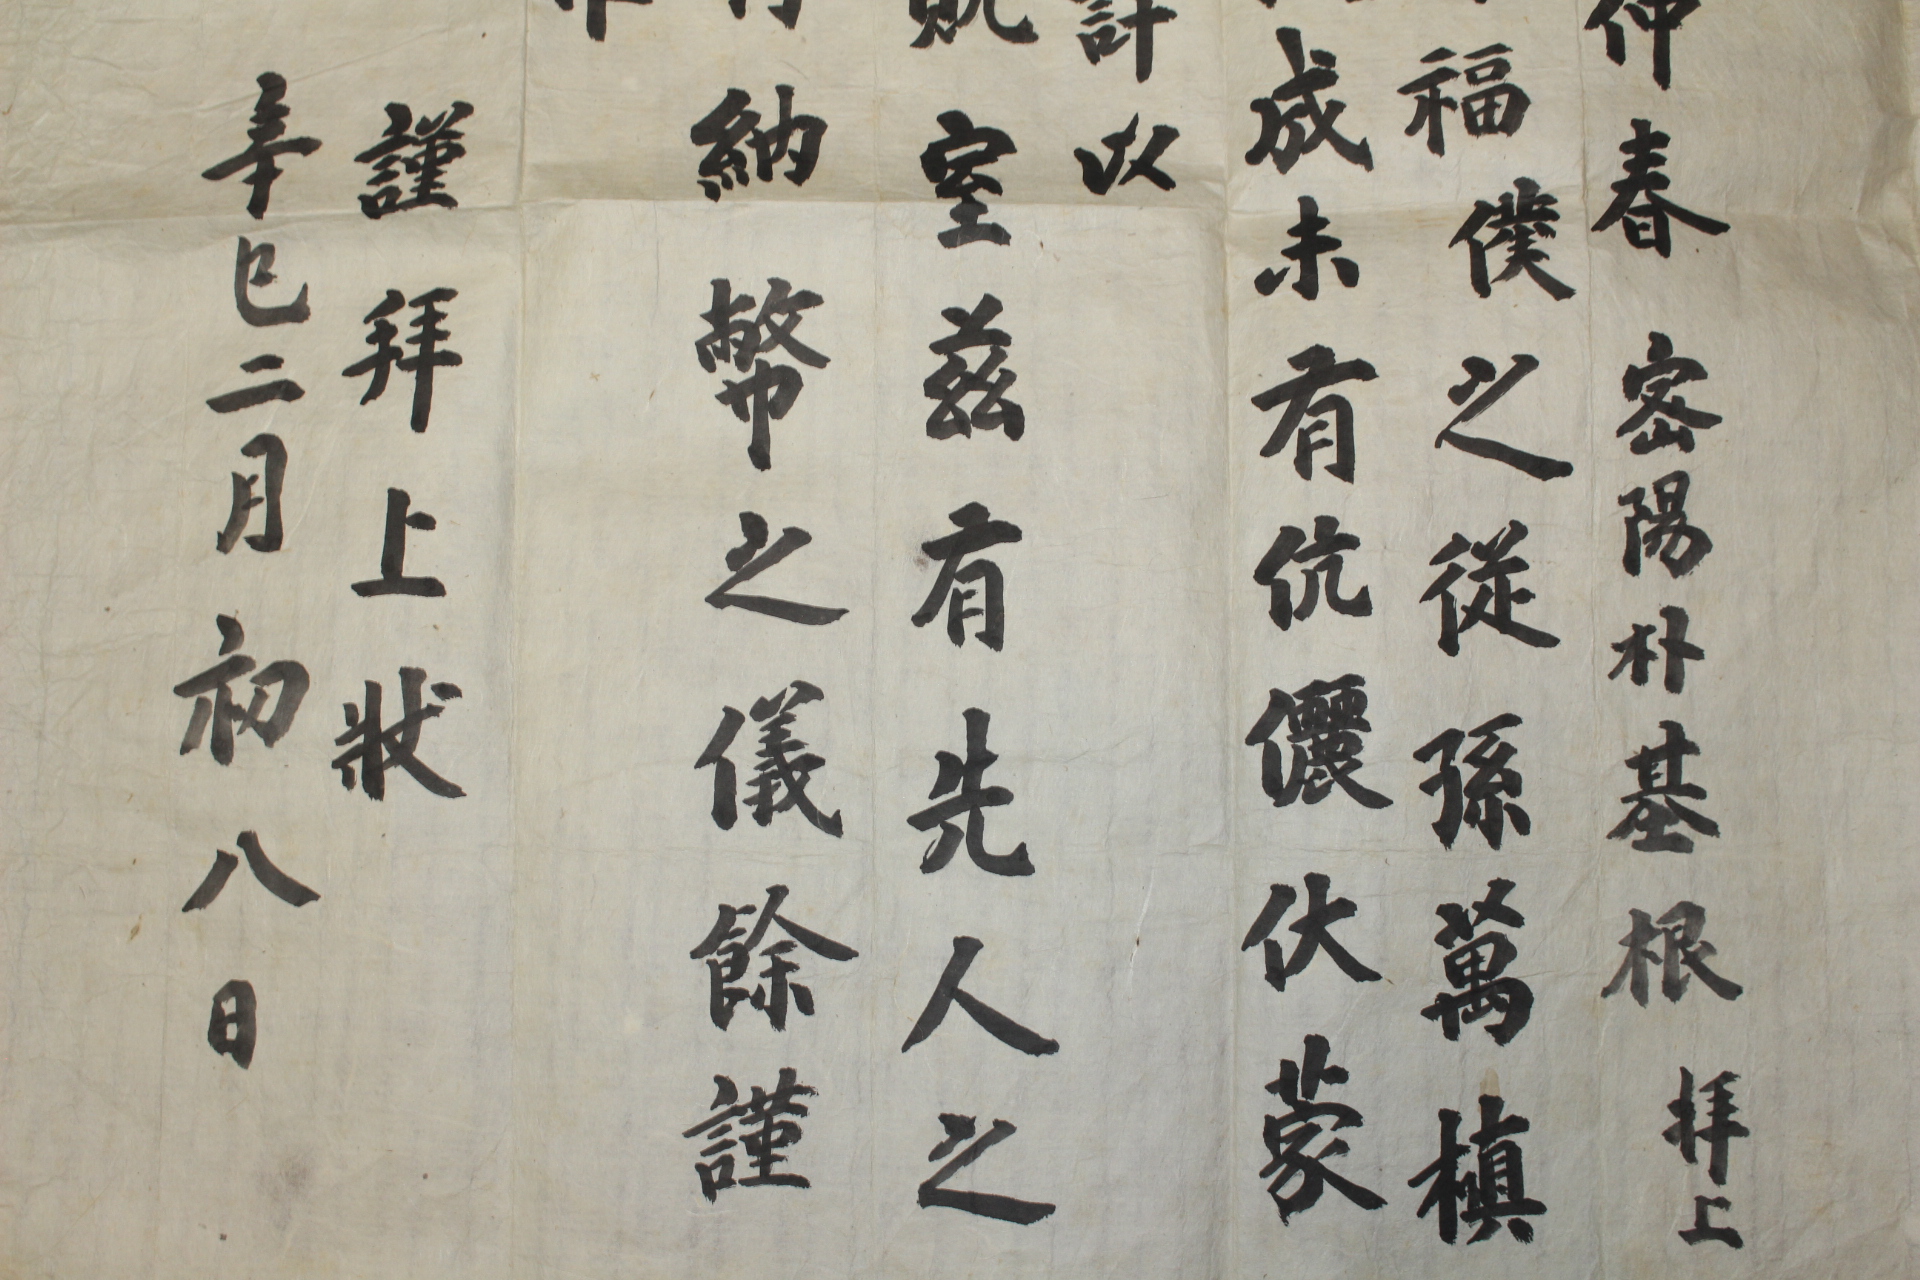 仲春 密陽朴基根 拜上
福僕之從孫萬楨
成未有伉儷伏蒙
計以
貺室茲有先人之
納幣之儀餘謹
謹拜上狀
辛巳二月初八日